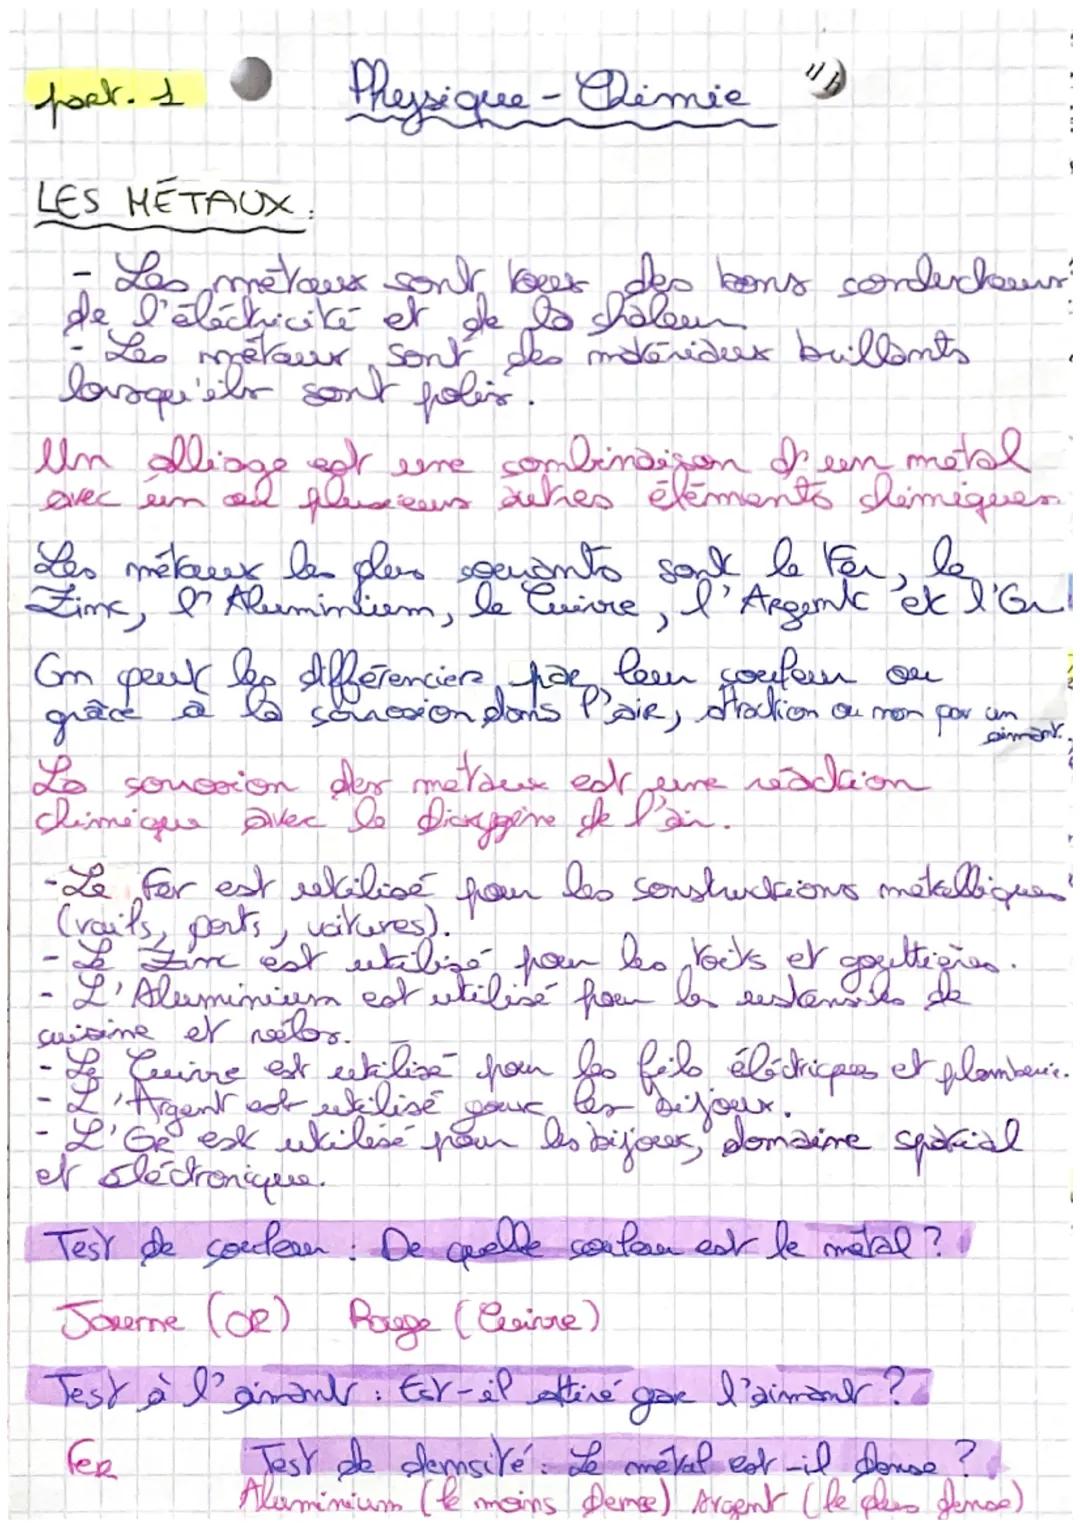 part. 1
Physique - Chimie
LES MÉTAUX :
- Les métaux sont tous des bons conducteurs
de l'éléctricité et de la chaleur
- Les métaux sont des matériaux brillants
lorsqu'ils sont polis.
Un alliage est une combinaison d'un métal
avec un ou plusieurs autres éléments chimiques.
Les métaux les plus courants sont le Fer, le
Zinc, l'Aluminium, le Cuivre, l'Argent et l'Or
On peut les différencier par leur couleur ou
grâce à la corrosion dans l'air, attraction ou non par un
aimant.
La corrosion des métaux est une réaction
chimique avec le dioxygène de l'air.
- Le Fer est utilisé pour les constructions métalliques
(rails, ponts, voitures).
- Le Zinc est utilisé pour les toits et gouttières.
- L'Aluminium est utilisé pour les ustensiles de
cuisine et vélos.
- Le Cuivre est utilisé pour les fils éléctriques et plomberie.
- L'Argent est utilisé pour les bijoux.
- L'Or est utilisé pour les bijoux, domaine spatial
et éléctronique.
Test de couleur : De quelle couleur est le métal ?
Jaune (OR) Rouge (Cuivre)
Test à l'aimant : Est-il attiré par l'aimant ?
Fer Test de densité : Le métal est-il dense ?
Aluminium (le moins dense) Argent (le plus dense)